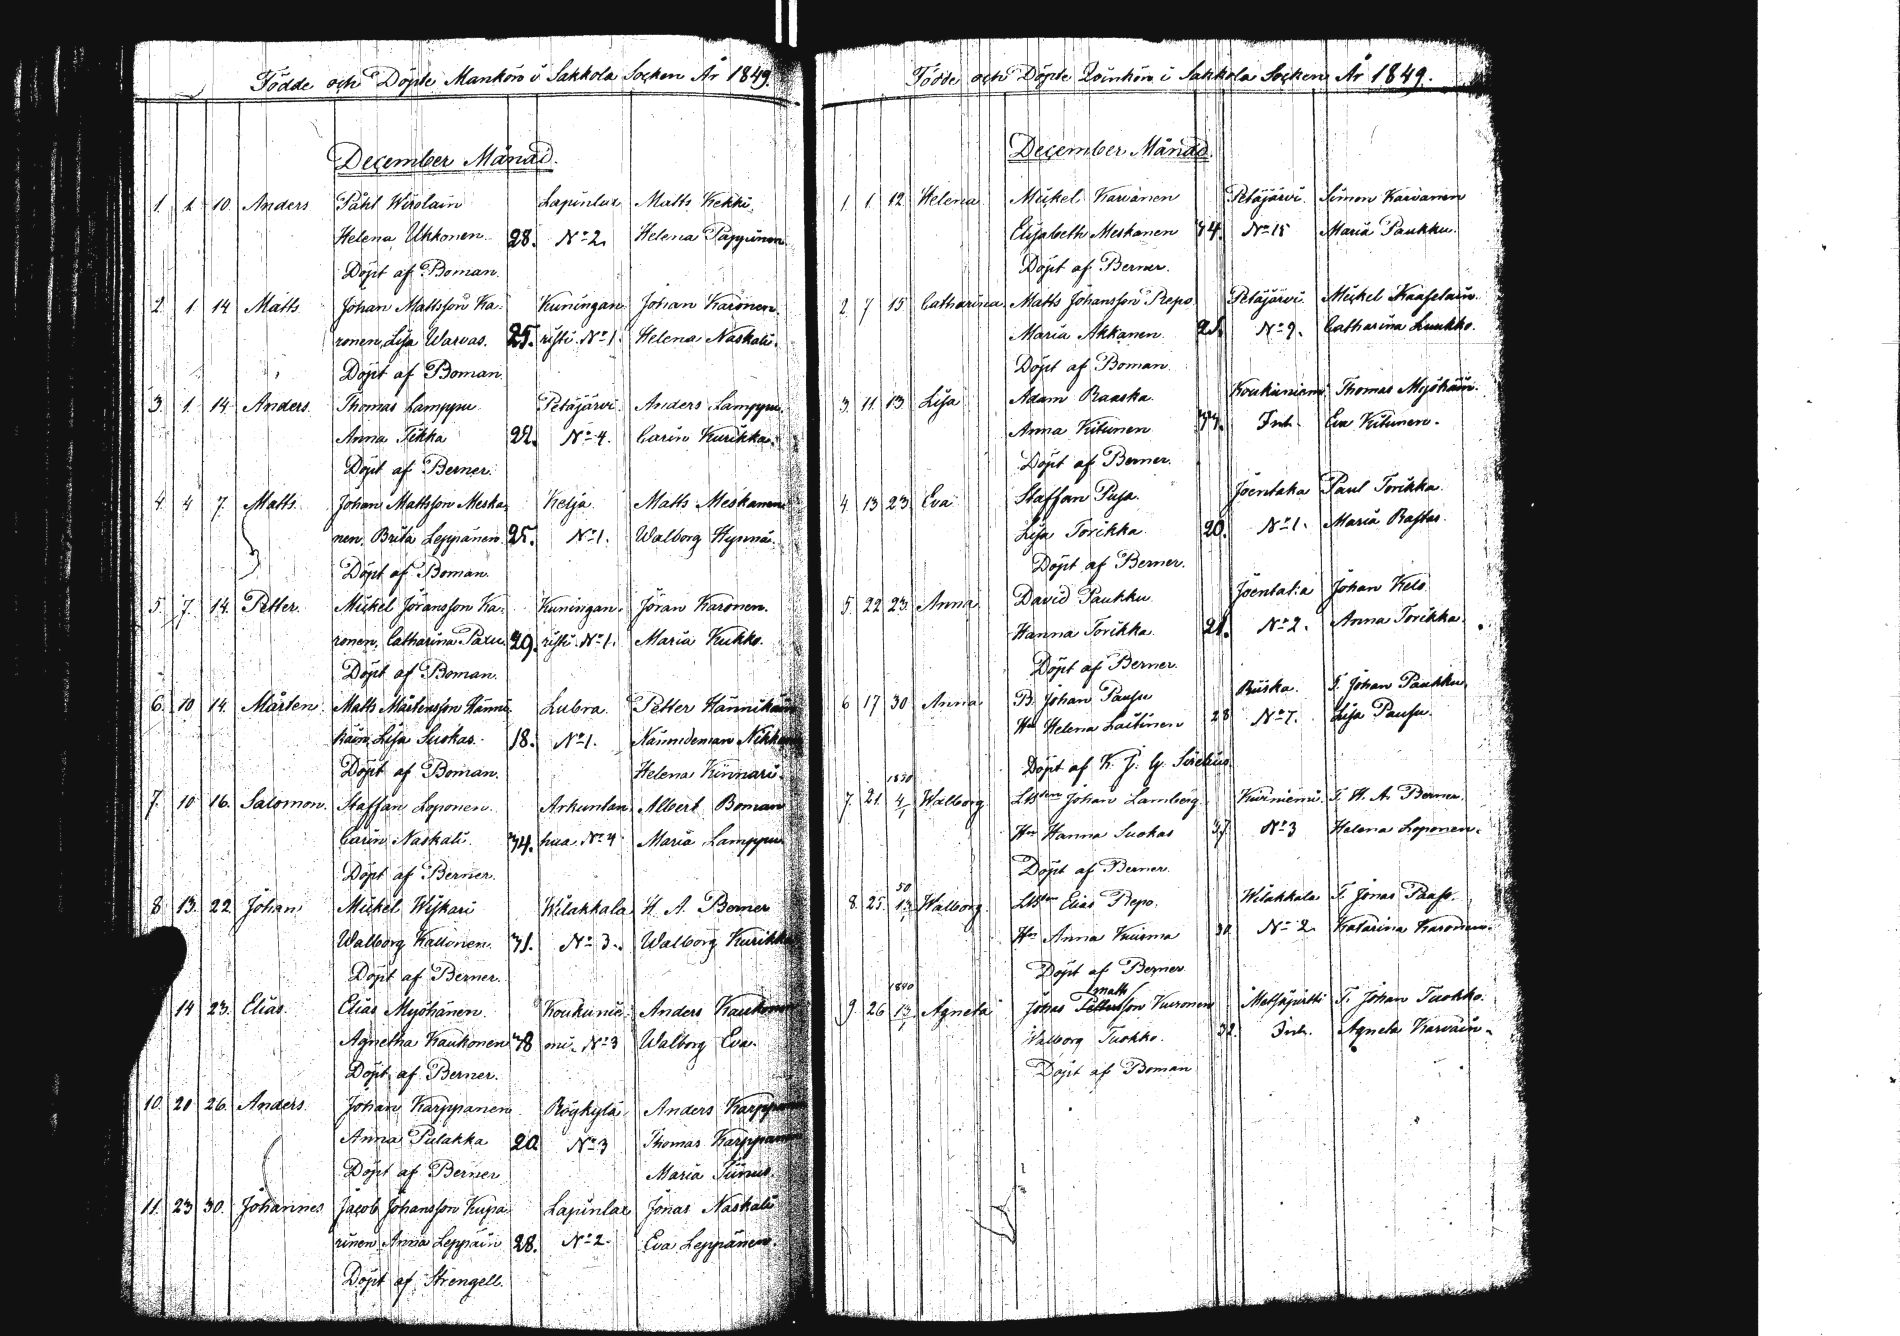 Födde och Döpte Mankön i Sakkola Socken År 1849.
December Månad.
1. 1 10. Anders Påhl Wirolain Lapinlax Matts Kekki.
Helena Ukkonen. 28. No 2. Helena Pappinen
Döpt af Boman.
2 1. 14 Matts Johan Mattsson Ka- Kuningan Johan Karonen
ronen, Lisa Warvas. 25. risti No 1. Helena Naskali.
Döpt af Boman.
3. 1. 14 Anders. Thomas Lamppu Petäjärvi. Anders Lamppu.
Anna Tikka 22. No 4. Carin Kurikka.
Döpt af Berner.
4. 4 7. Matts. Johan Mattsson Meska- Kelja Matts Meskanen
nen, Brita Leppänen. 25. No 1. Walborg Hynnä.
Döpt af Boman.
5. 7. 14. Petter. Mickel Jöransson Ka- Kuningan- Jöran Karonen.
ronen, Catharina Paxu. 29. risti. No 1. Maria Kukko.
Döpt af Boman.
6. 10 14. Mårten. Matts Mårtensson Hänni- Lubra. Petter Hännikäin
käin, Lisa Suokas. 18. No 1. Nämndeman Nikkan
Döpt af Boman. Helena Kinnari.
7. 10 16. Salomon. Staffan Loponen. Arkuntan Albert Boman
Carin Naskali 34. hua No 4 Maria Lamppu
Döpt af Berner.
8 13. 22 Johan Mickel Wiskari Wilakkala H. A. Berner
Walborg Kallonen. 31. No 3. Walborg Kurikka
Döpt af Berner.
14 23. Elias. Elias Myöhänen. Koukunie- Anders Kaukonen
Agnetha Kaukonen 38 mi. No 3 Walborg Eva.
Döpt af Berner.
10. 20 26. Anders. Johan Karppanen Röykylä. Anders Karppanen
Anna Pulakka 20 No 3 Thomas Karppanen
Döpt af Berner Maria Tiinus.
11. 23 30. Johannes Jacob Johansson Kupa- Lapinlax Jonas Naskali
rinen, Anna Leppäin 28. No 2. Eva Leppänen.
Döpt af Strengell.
Födde och Döpte Qvinkön i Sakkola Socken År 1849.
December Månad.
1. 1. 12 Helena Mickel Karvanen Petäjärvi. Simon Karvanen
Elisabeth Meskanen 34. No 15 Maria Paukku.
Döpt af Berner.
2. 7 15 Catharina. Matts Johansson Repo. Petäjärvi. Mickel Kaaselain.
Maria Akkanen. No 9. Catharina Luukko.
Döpt af Boman
3. 11. 13 Lisa Adam Raaska. Koukuniemi Thomas Myöhäin.
Anna Kitunen 37. Inh. Eva Kitunen.
Döpt af Berner.
4. 13 23. Eva Staffan Pusa. Joentaka Paul Torikka.
Lisa Torikka. 20. No 1. Maria Rastas.
Döpt af Berner.
5. 22 23. Anna David Paukku Joentaka Johan Kelo
Hanna Torikka. 21. No 2. Anna Torikka.
Döpt af Berner.
6 17 30 Anna B. Johan Pausu Riiska. T. Johan Paukku.
Hn Helena Laitinen 28 No 7. Lisa Pausu.
Döpt af K. J. G. Sirelius.
1850
7. 21. 4/1 Walborg. Johan Lamberg. Kiiniemi. T. H. A. Berner.
Hn Hanna Suokas 37. No 3 Helena Loponen.
Döpt af Berner.
50
8. 25. 13/1 Walborg. Elias Repo. Wilakkala T. Jonas Paaso.
Hn Anna Kuisma 30. No 2. Katarina Karonen.
Döpt af Berner
Matts
9. 26 13/1 Agneta Johas Pettersson Kuronen Metsäpirtti T. Johan Tuokko.
Walborg Tuokko. 32. Inh. Agneta Karvain.
Döpt af Boman